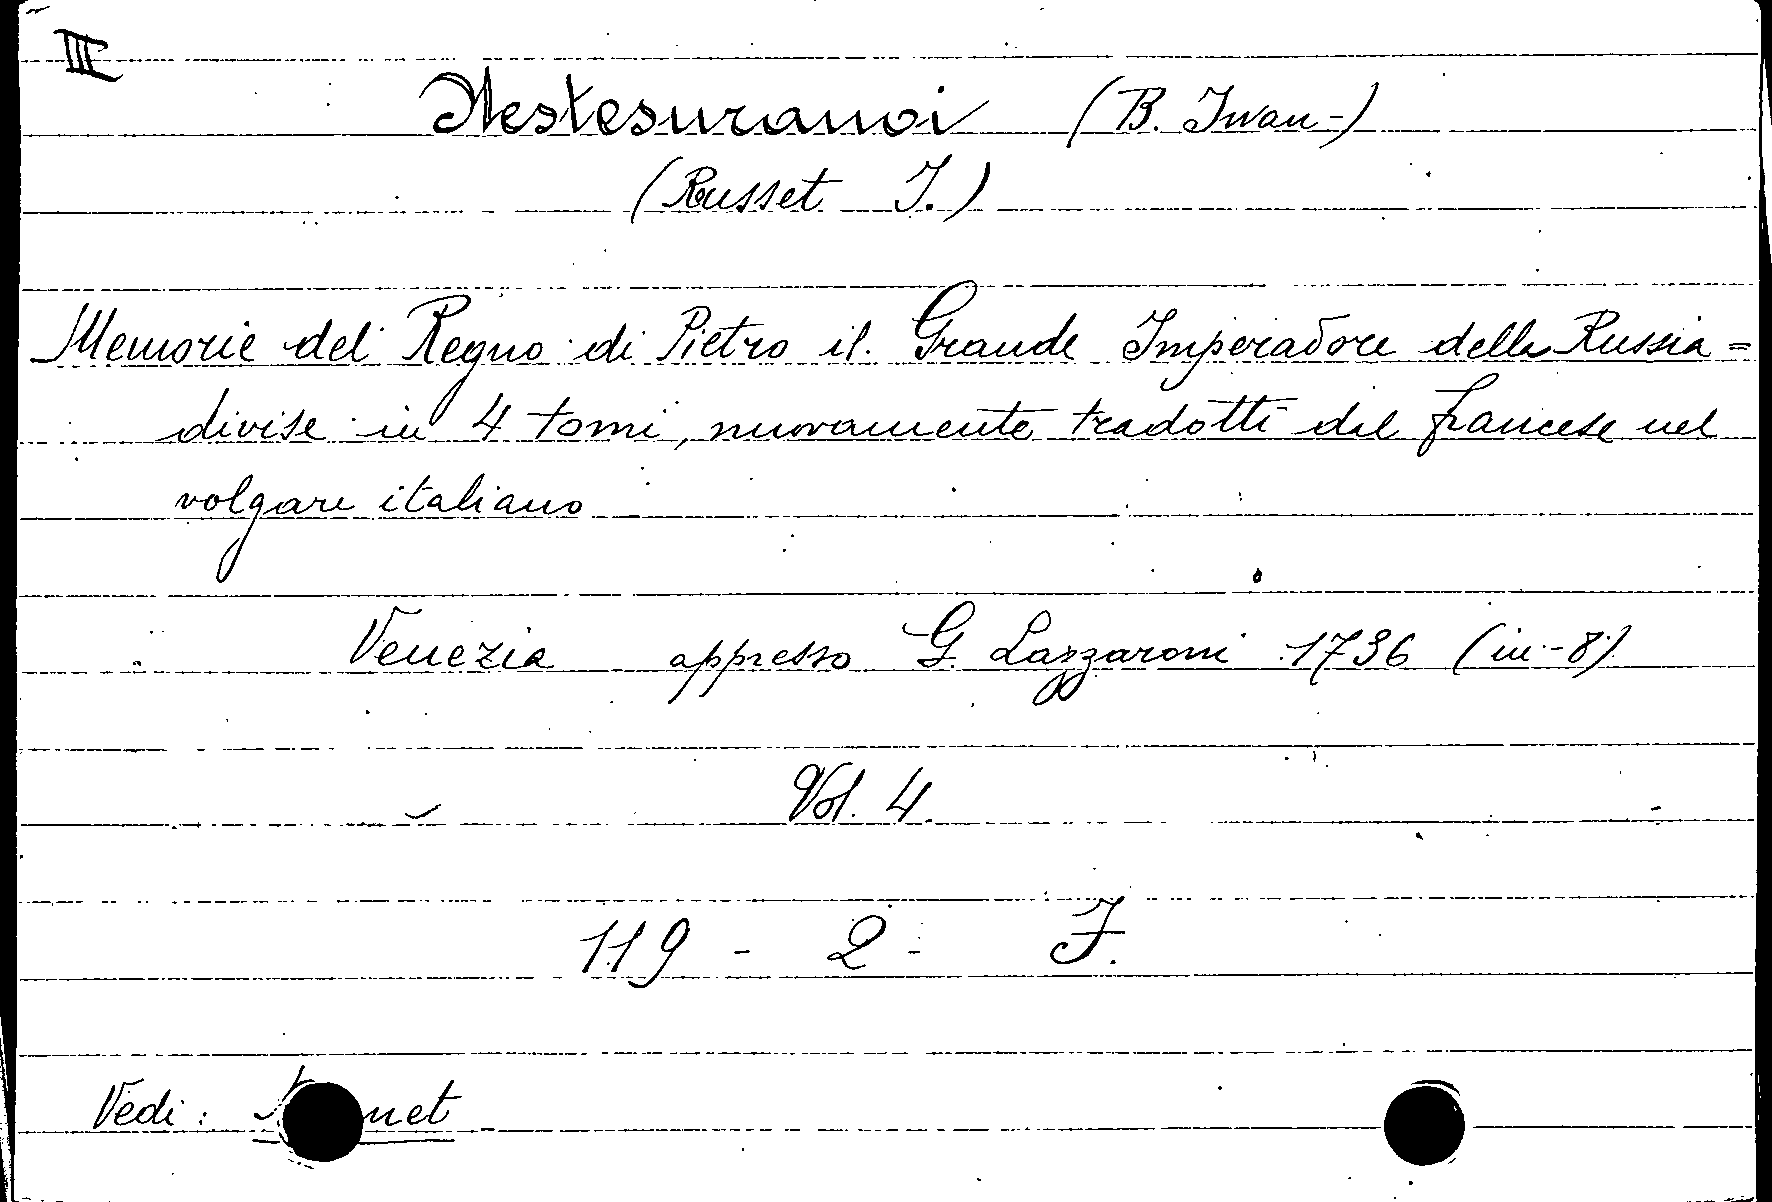 III
Nestesuranoi (B. Iwan-)
(Russet J.)
Memorie del Regno di Pietro il Grande Imperadore della Russia =
divise in 4 tomi, nuovamente tradotti dal francese nel
volgare italiano
Venezia appresso G. Lazzaroni 1736 (in-8)
Vol. 4.
119 - 2 - F.
Vedi: